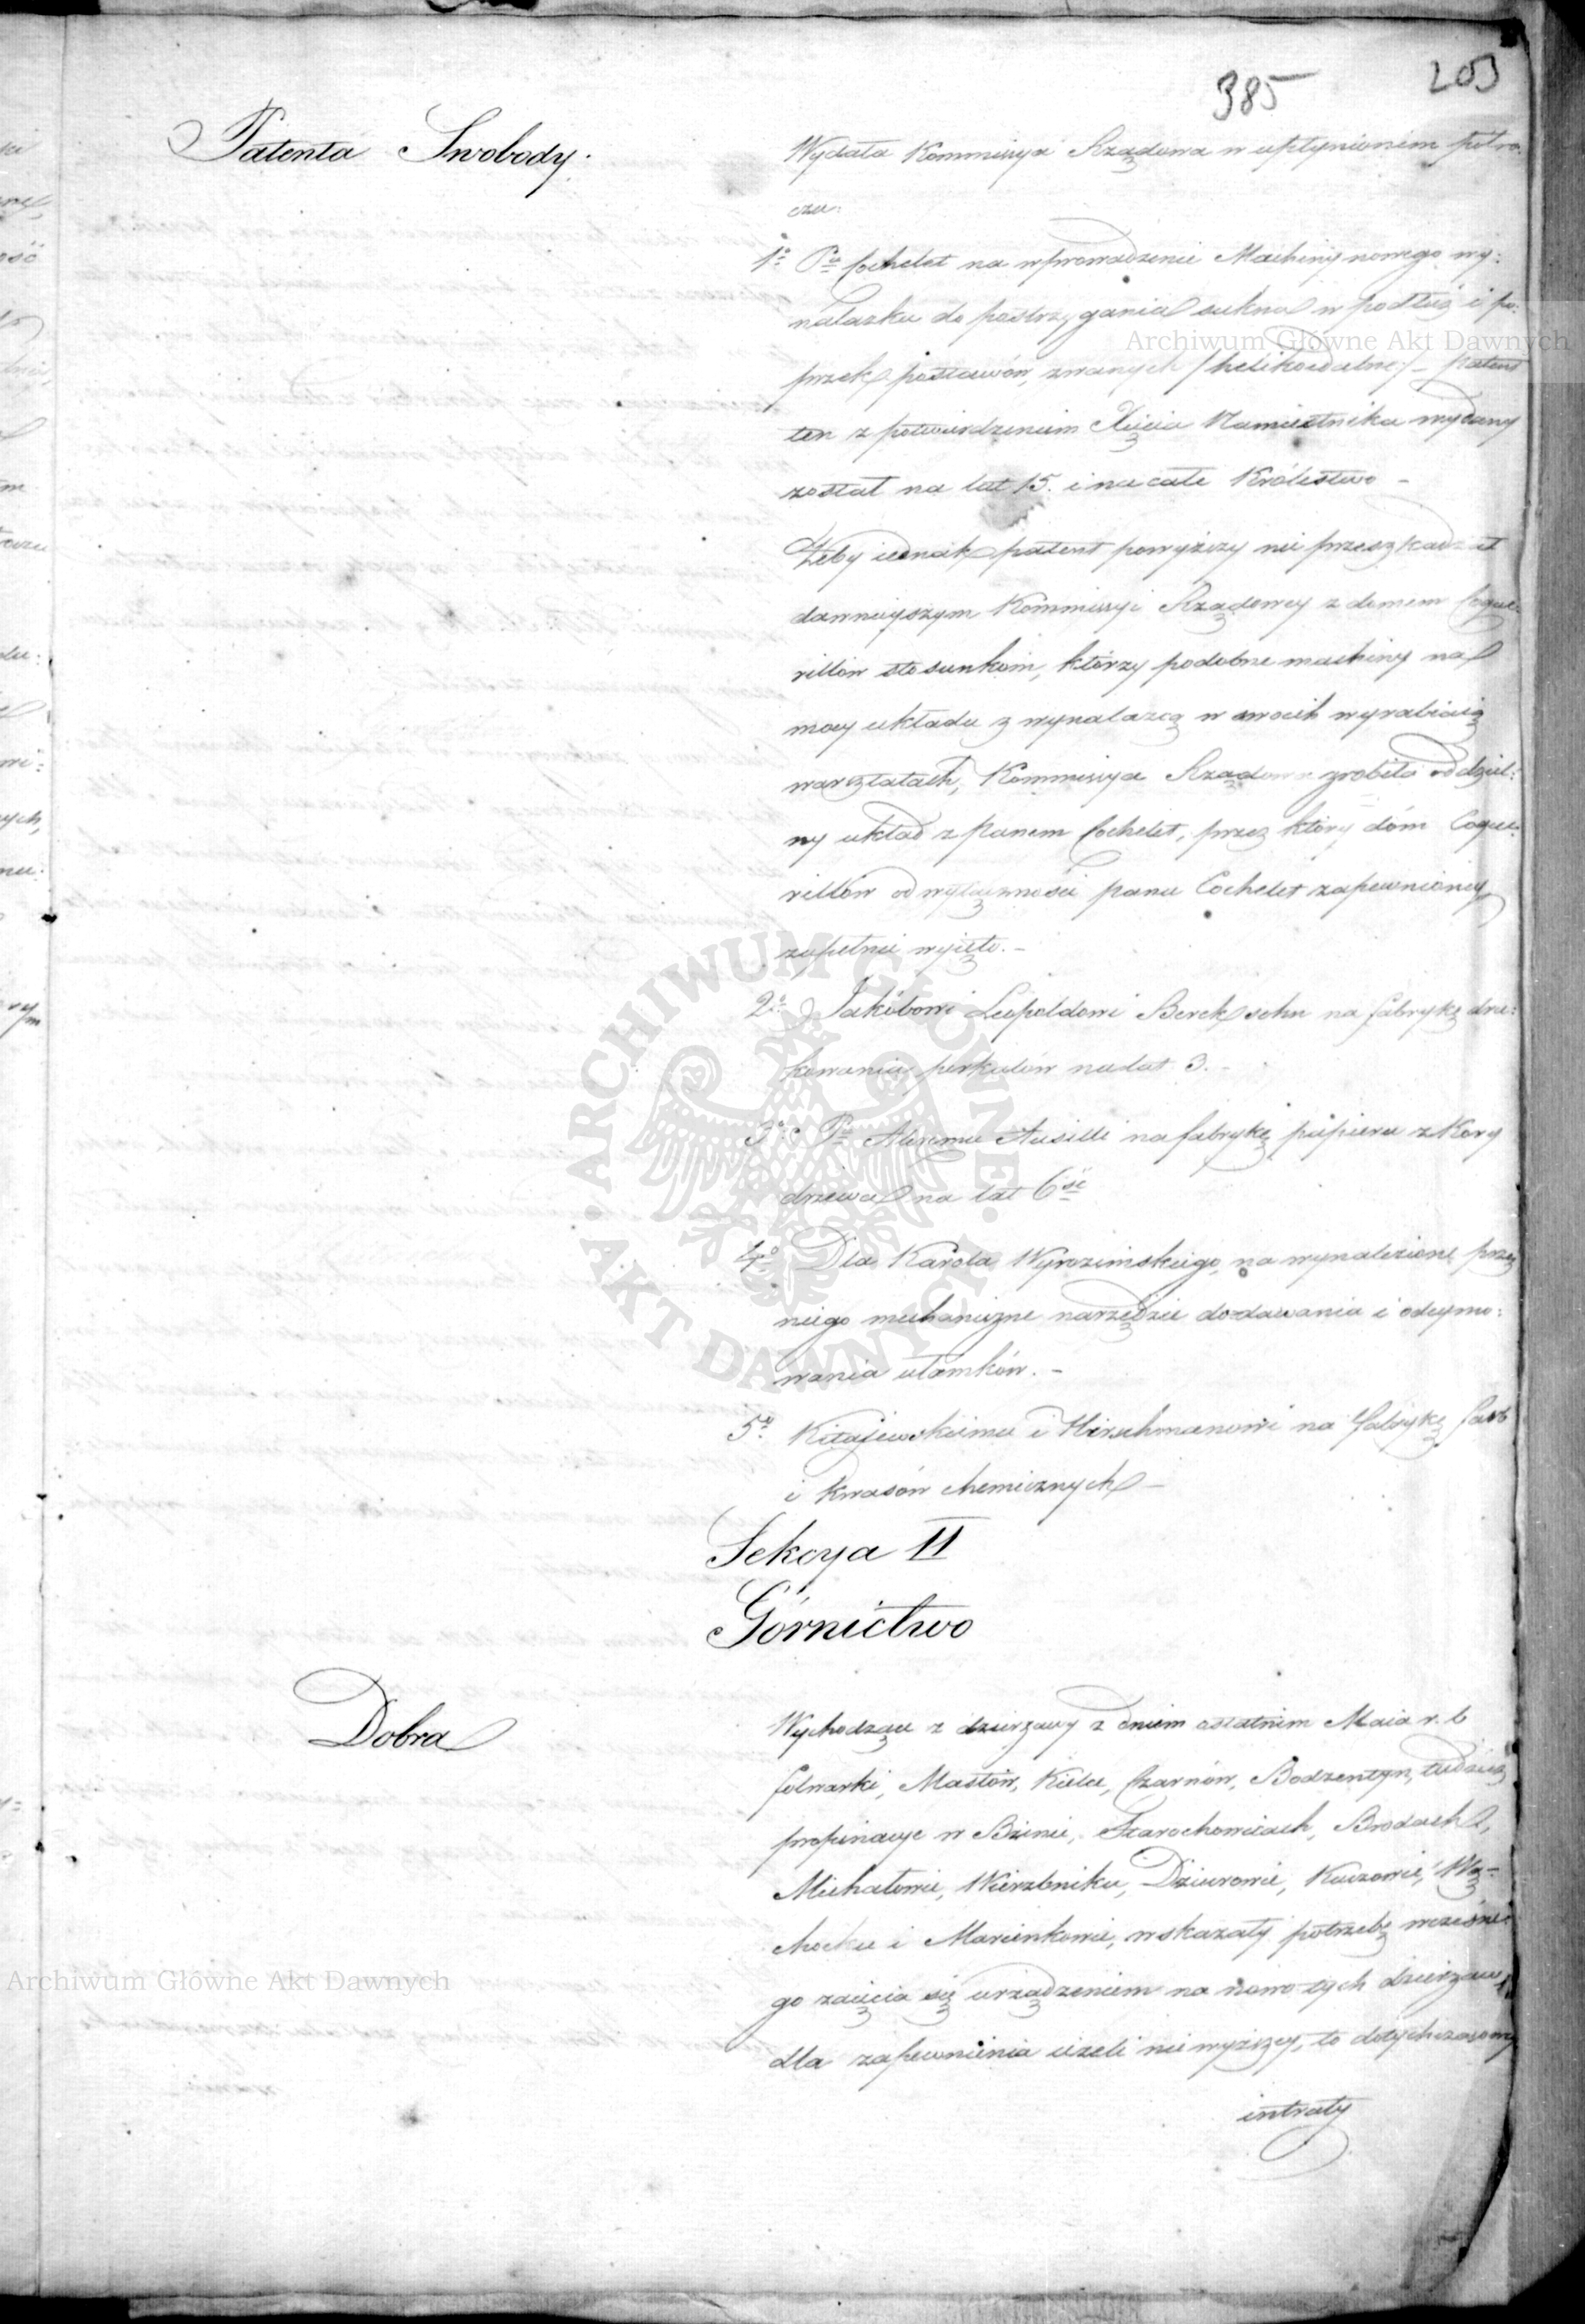 385
203
Patenta Swobody.
Wydała Kommissya Rządowa w upłynionem półro:
czu:
1o Pu Cochelet na wprowadzenie Machiny nowego wy:
nalazku do postrzygania sukna w podłuż i po:
przek postawów, zwanych /helikoidalne/ – patent
ten z potwierdzeniem Xięcia Namiestnika wydany
został na lat 15. i na całe Królestwo –
Żeby iednak patent powyższy nie przeszkadzał
dawnieyszym Kommissyi Rządowey z domem Coque:
rillów stosunkom, którzy podobne machiny na
mocy układu z wynalazcą w swoich wyrabiaią
warsztatach, Kommissya Rządowa zrobiła oddziel:
ny układ z Panem Cochelet, przez który dóm Coque:
rillów od wyłączności panu Cochelet zapewnioney
zupełnie wyięto. –
2o Jakóbowi Leopoldowi Bereksohn na fabrykę dru:
kowania perkalów na lat 3. –
3o Pu Assilli na fabrykę papieru z kory
drzewa na lat 6ść
4o Dla Karola Wyrozimskiego, na wynalezione przez
niego mechaniczne narzędzie dodawania i odeymo:
wania ułamków. –
5o Kitajewskiemu i Hirschmanowi na fabrykę farb
i kwasów chemicznych –
Sekcya II
Górnictwo
Dobra
Wychodzące z dzierżawy z dniem ostatnim Maia r. b
folwarki, Masłów, Kielce, Czarnów, Bodzentyn, tudzież
propinacye w Bzinie, Starochowicach, Brodach,
Michałowie, Wierzbniku, Dziurowie, Kuczowie, Wą-
chocku i Marcinkowie, wskazały potrzebę wcześne:
go zaięcia się urządzeniem na nowo tych dzierżaw,
dla zapewnienia ieżeli nie wyższey, to dotychczasowey
intraty
Archiwum Główne Akt Dawnych
ARCHIWUM GŁÓWNE AKT DAWNYCH
Archiwum Główne Akt Dawnych